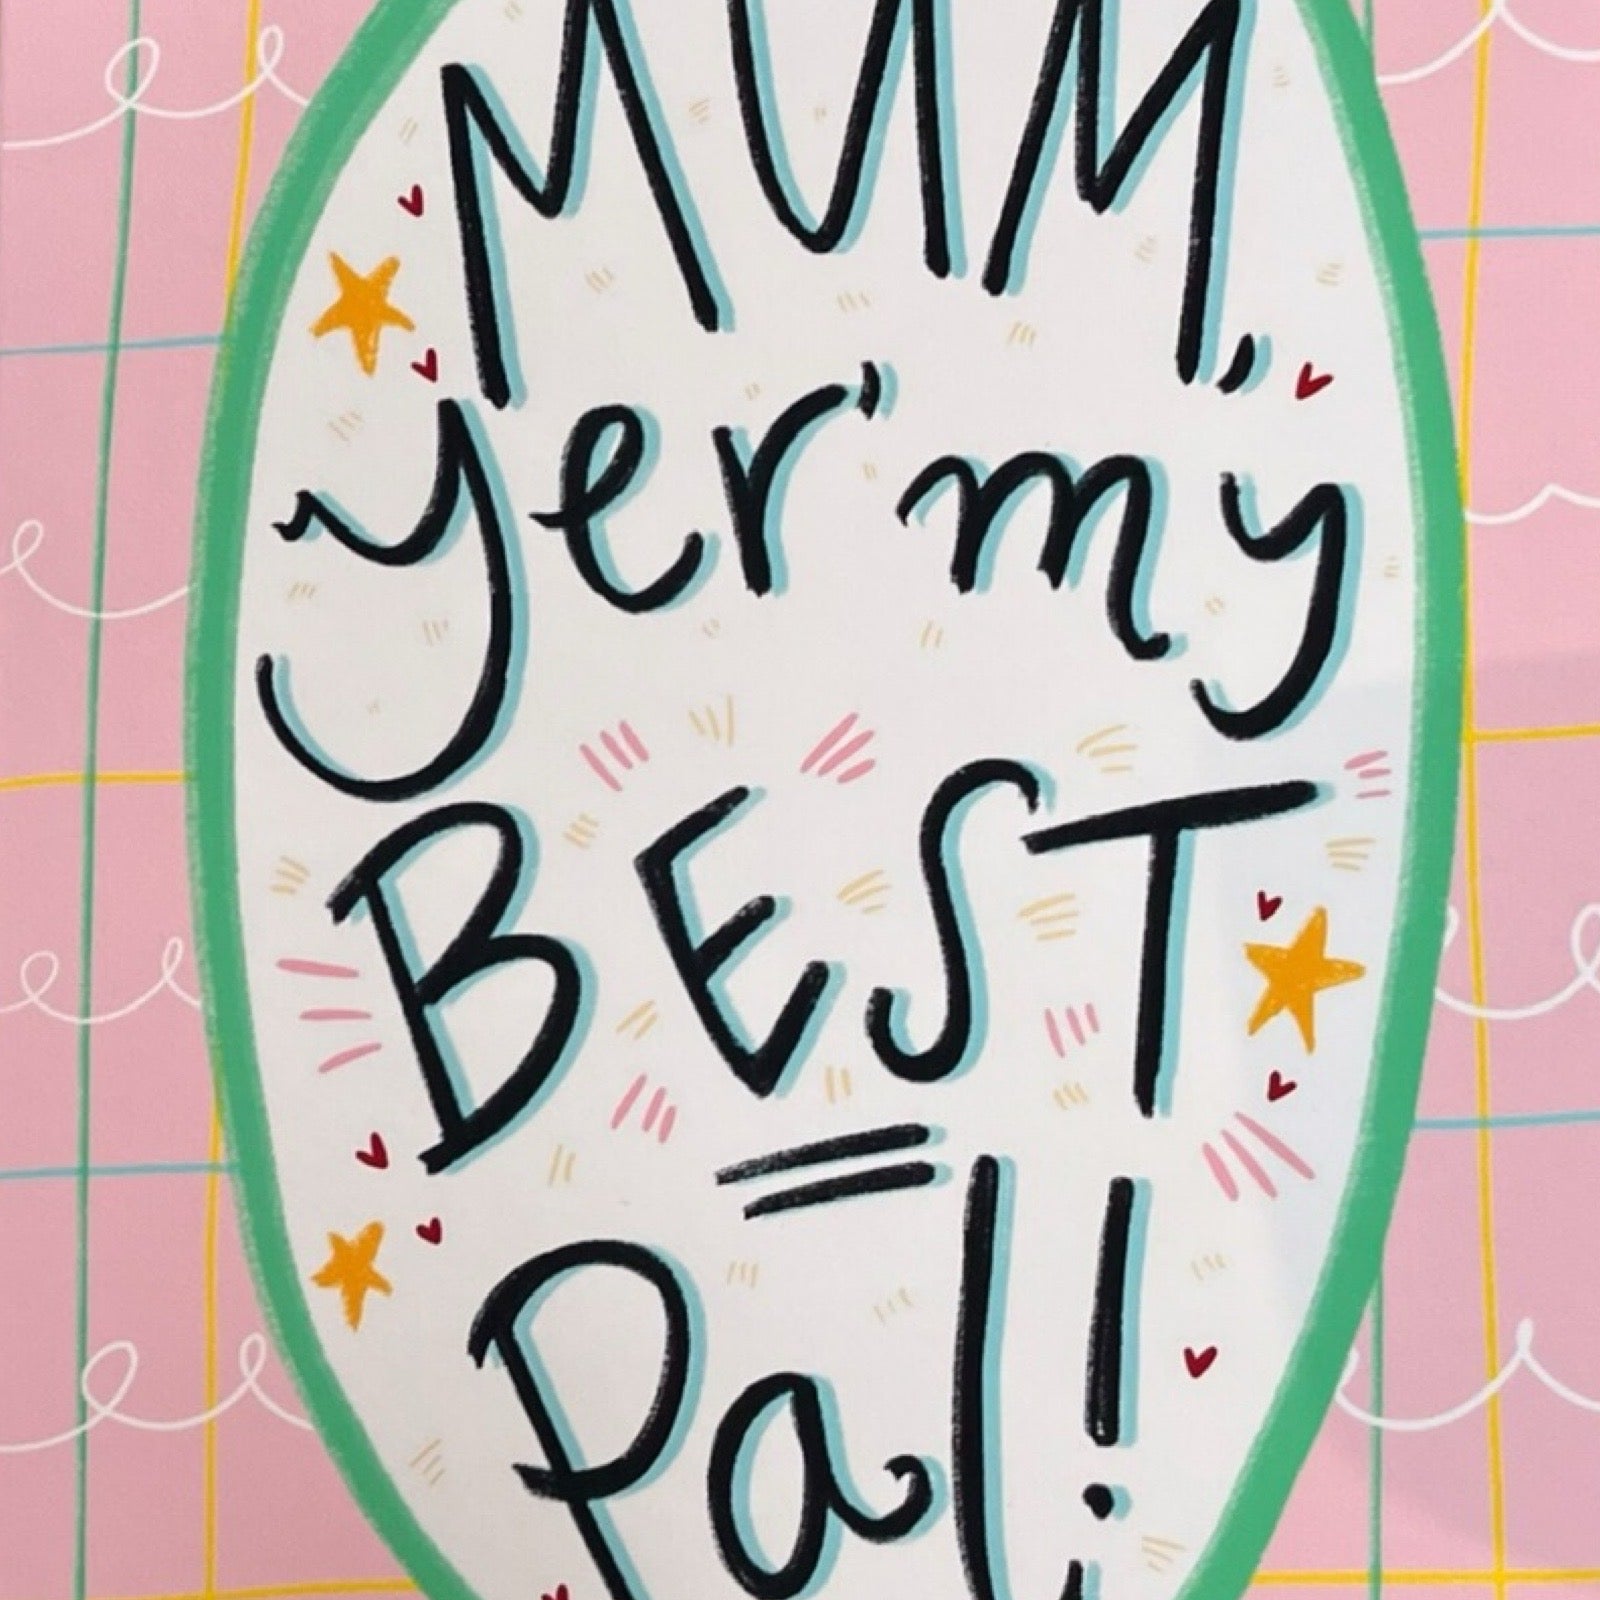 MUM,
yer' my
BEST
Pal!